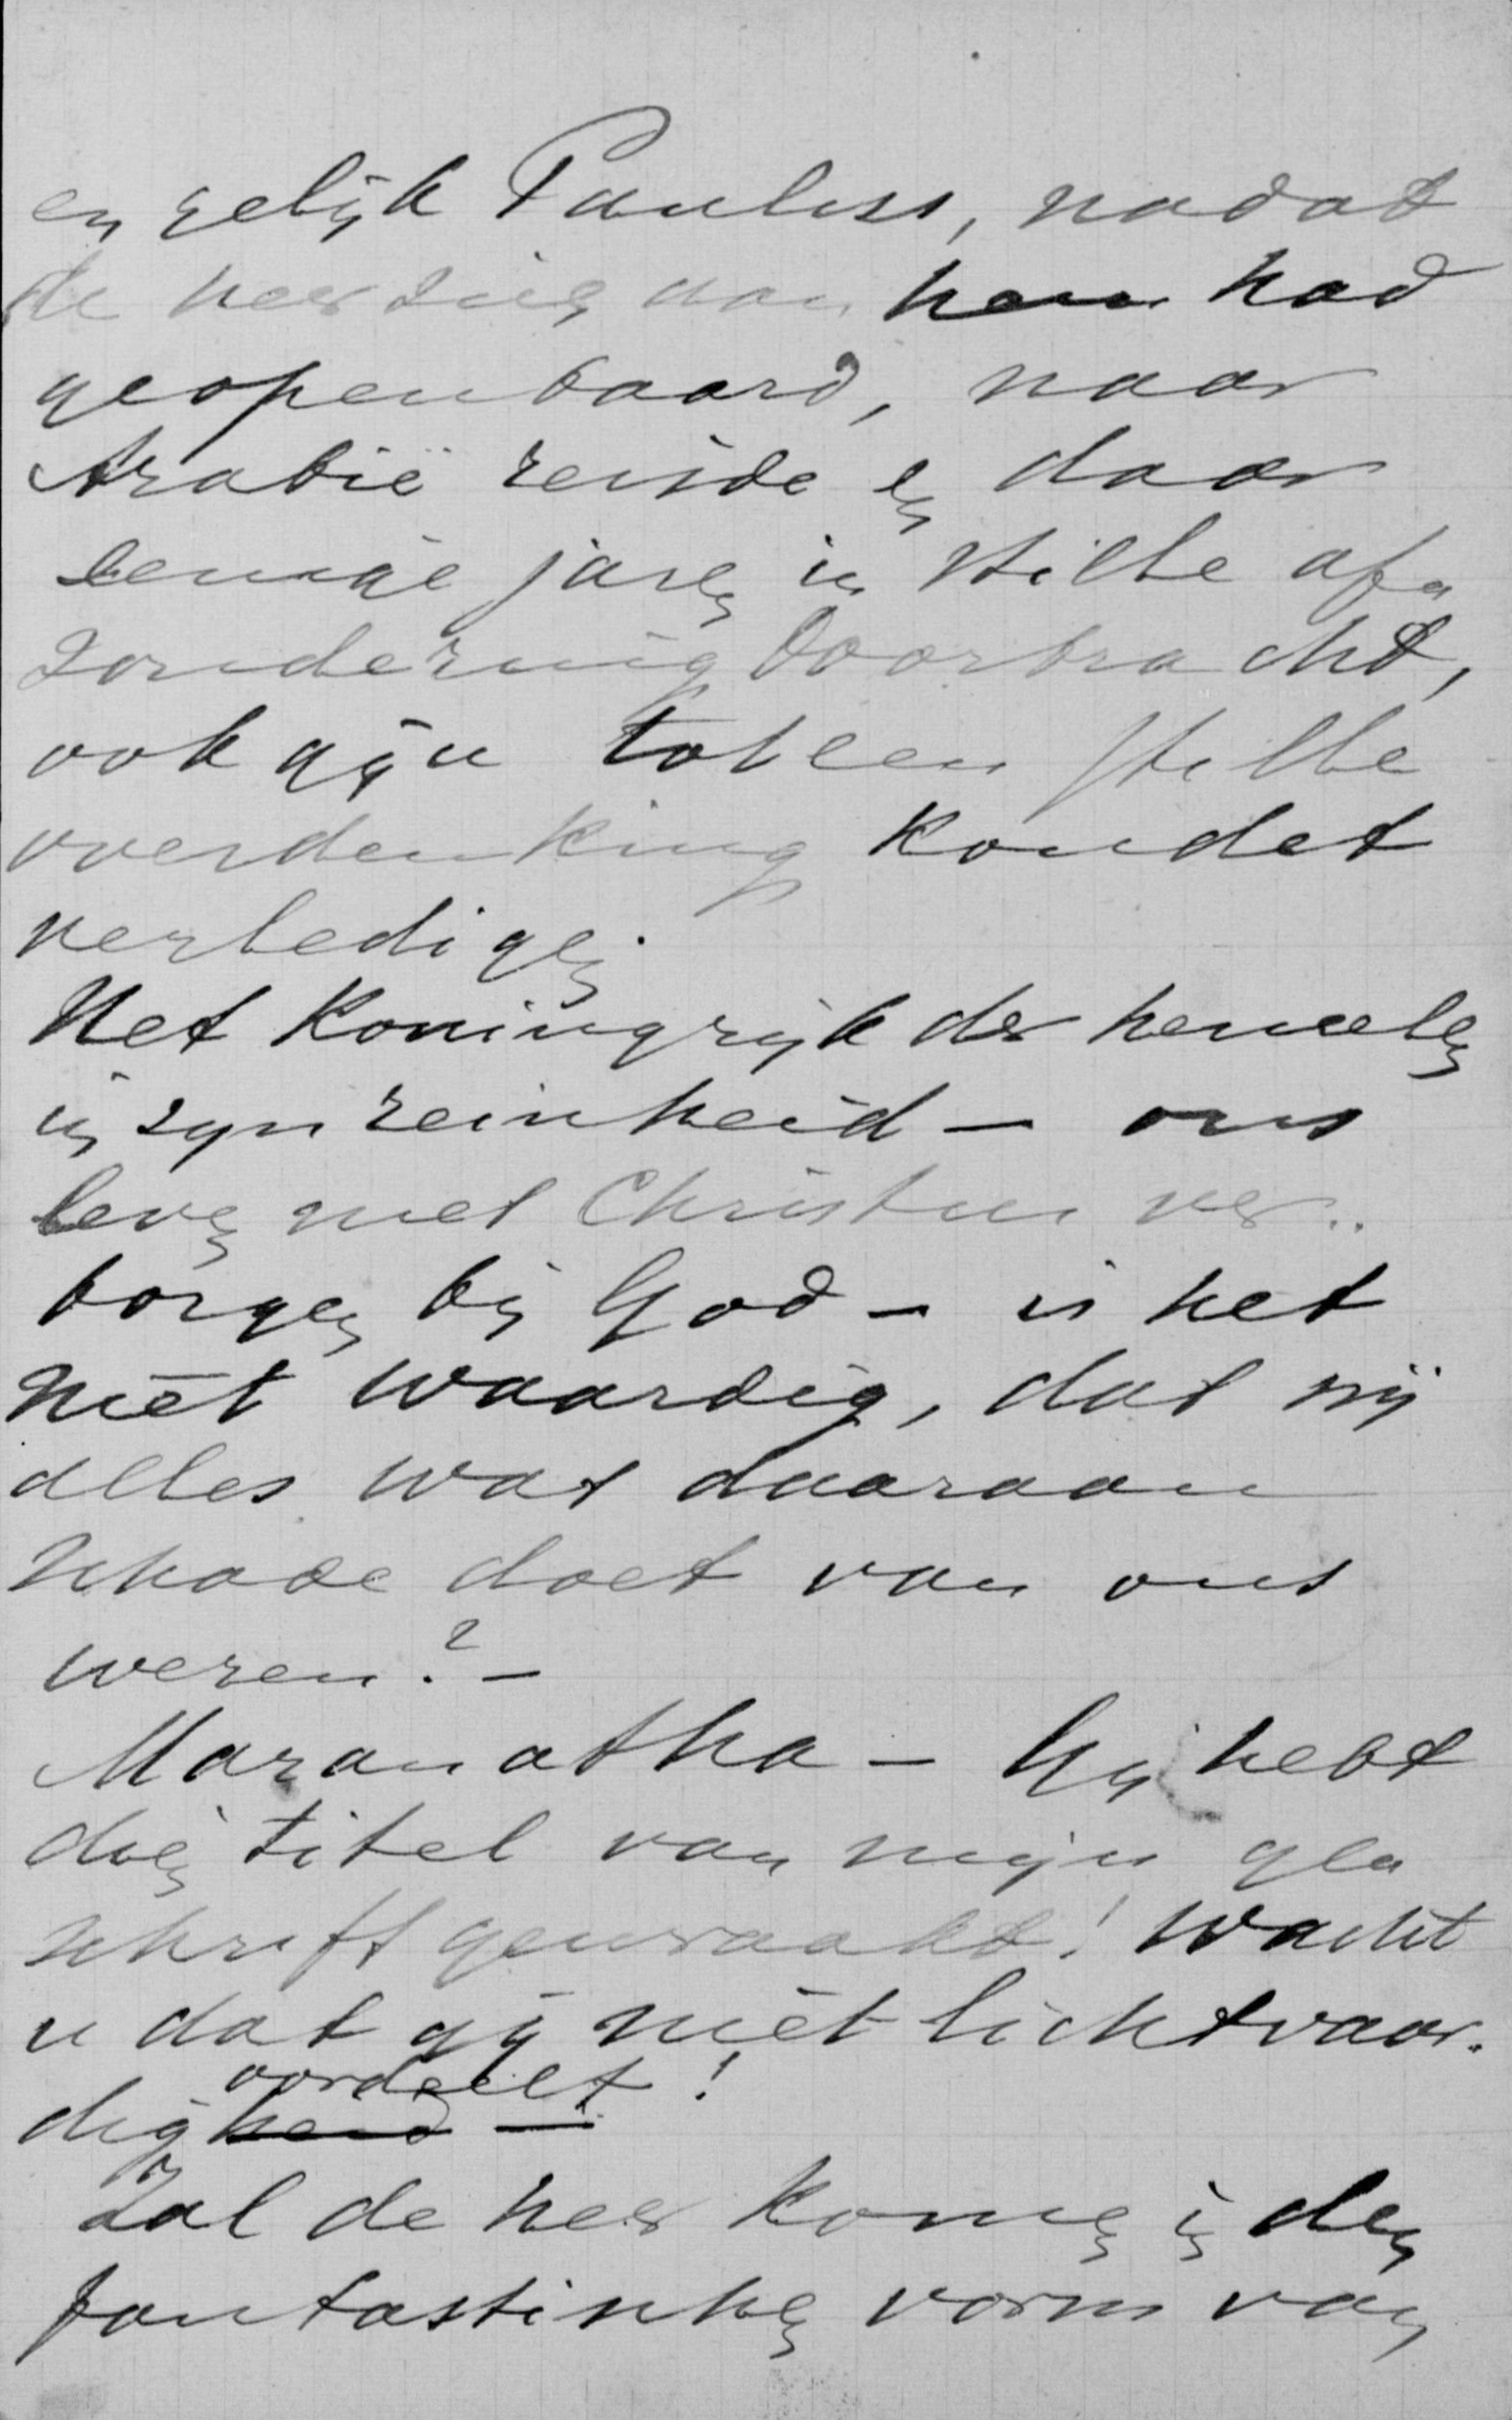 en gelijk Paulus, nadat
de heer zich aan hem had
geopenbaard, naar
Arabië reisde en daar
eenige jaren in stille af„
zondering doorbracht,
ook gij u tot een stille
overdenking kondet
verledigen.
Het Koningrijk der hemelen
in zijn reinheid — ons
leven met Christus ver„
borgen bij God — is het
niet waardig, dat wij
alles wat daaraan
schade doet van ons
weren? —
Maranatha — Gij hebt
dien titel van mijn ge„
schrift gewraakt! Wacht
u dat gij niet lichtvaar„
dig oordeelt!
Zal de heer komen in den
fantastischen vorm van